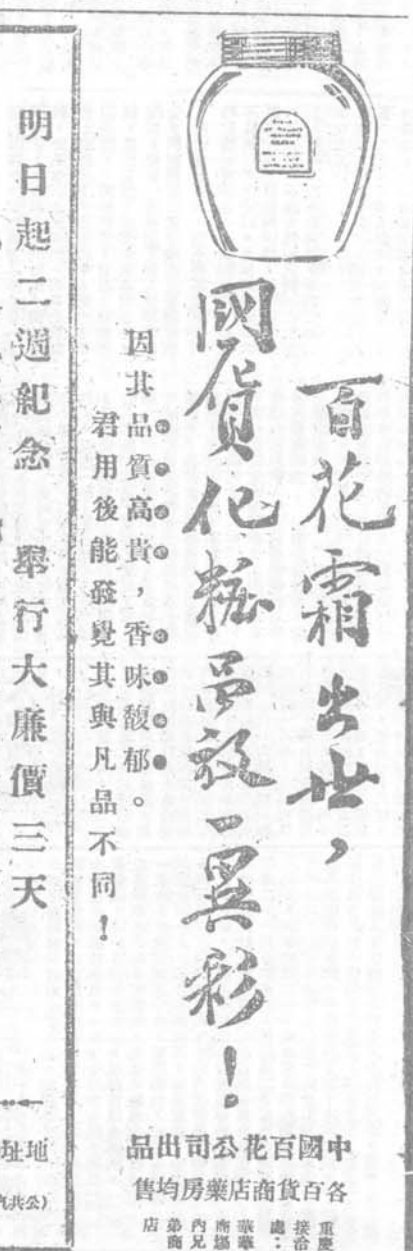 百花霜出世，
國貨化粧品放一異彩！
因其品質高貴，香味馥郁。
君用後能發覺其與凡品不同！
中國百花公司出品
各百貨商店藥房均售
重慶
接洽
處：
華華
商場
內兄
弟商
店
明日起二週紀念　舉行大廉價三天
地址
(公共汽